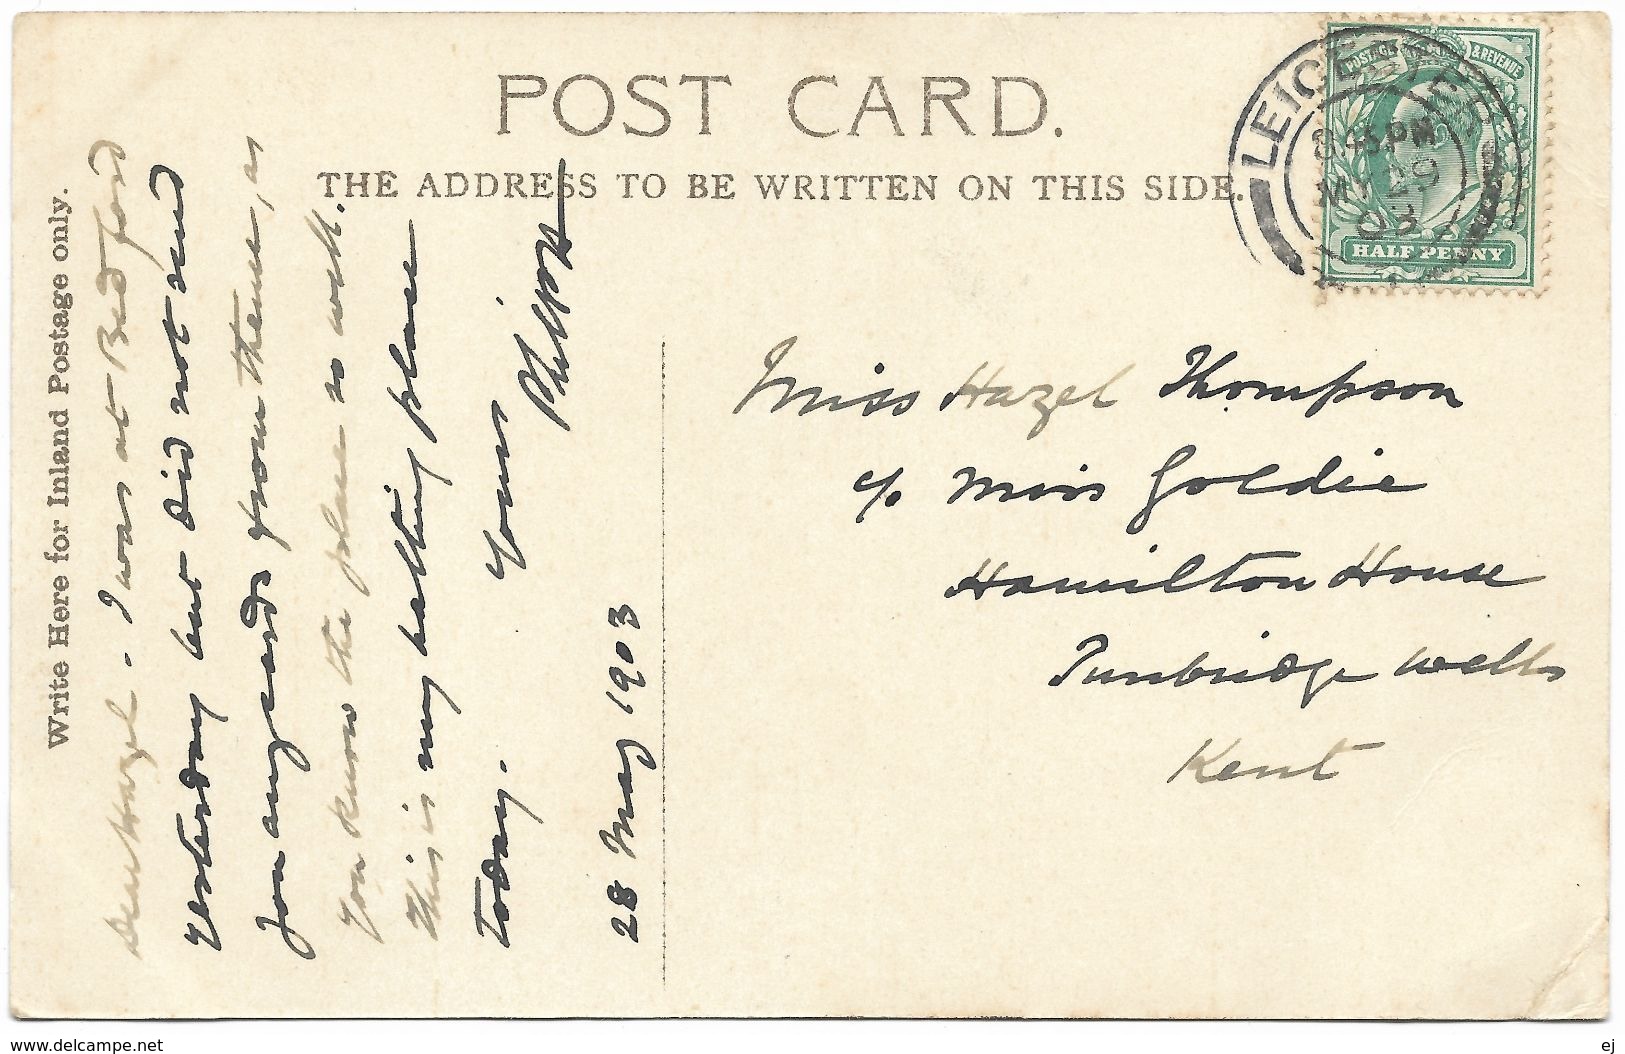 POST CARD.
THE ADDRESS TO BE WRITTEN ON THIS SIDE.
Write Here for Inland Postage only.
Dear Hazel. I was at Bedford
yesterday but did not send
you any cards from thence, as
you know the place so well.
This is my halting place
today.
Yours
28 May 1903
Miss Hazel Thompson
c/o Miss Goldie
Hamilton House
Tunbridge Wells
Kent
POSTAGE & REVENUE
HALF PENNY
LEICESTER
PM
MY 29
03
www.delcampe.net
ej